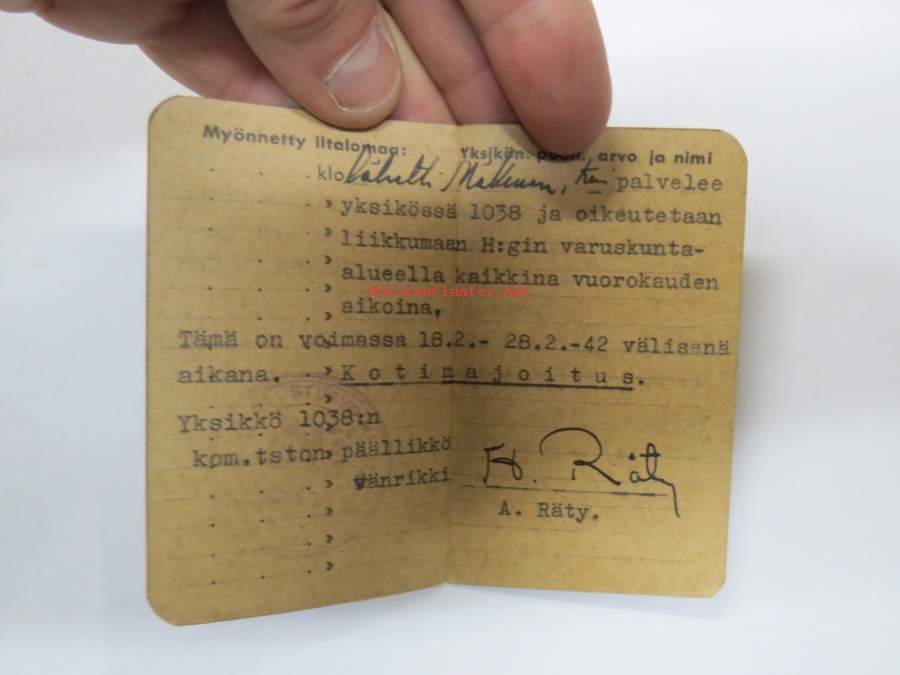 Myönnetty iltalomaa:
Yksikön. arvo ja nimi
klo Makunen, palvelee
yksikössä 1038 ja oikeutetaan
liikkumaan H:gin varuskunta-
alueella kaikkina vuorokauden
Antikvariaatti.net
aikoina,
Tämä on voimassa 18.2.- 28.2.-42 välisenä
aikana. Kotimajoitus.
Yksikkö 1038:n
kom.tston päällikkö
vänrikki
A. Räty
A. Räty.